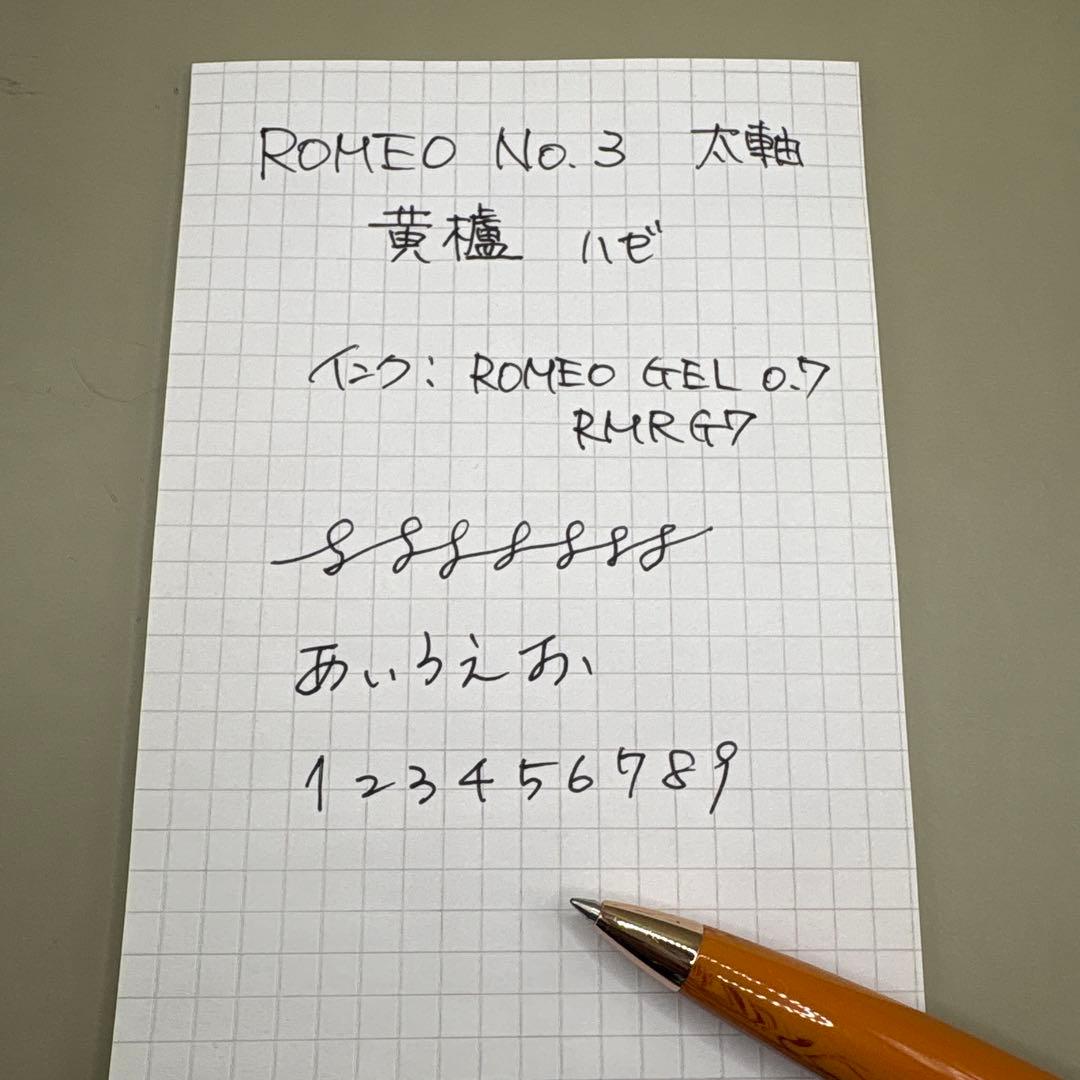 ROMEO No.3 太軸
黄櫨 ハゼ
インク: ROMEO GEL 0.7
RMRG7
あいうえお
123456789